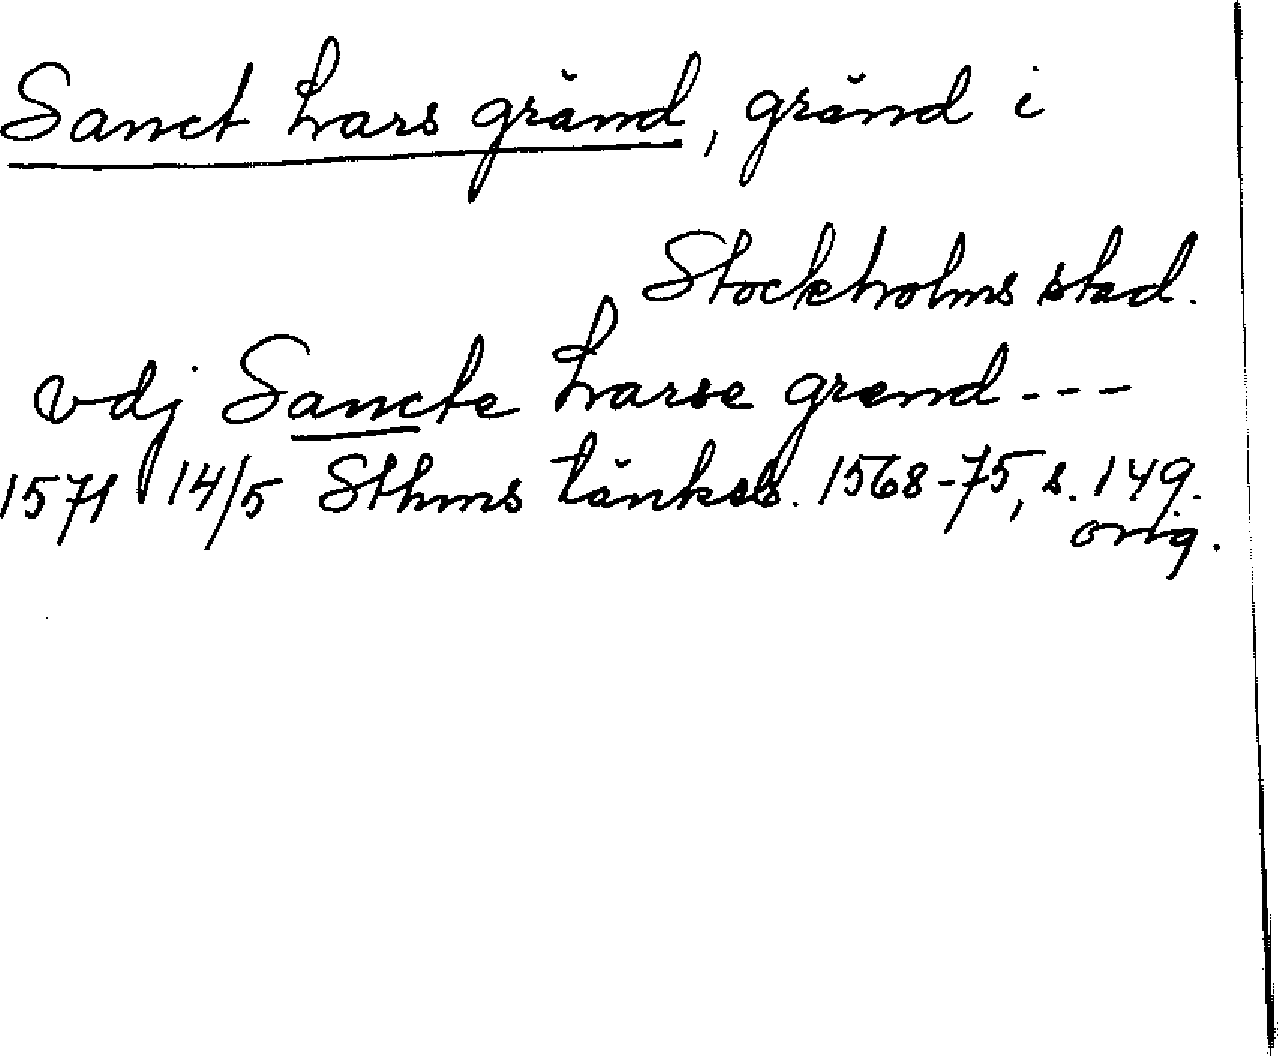 Sanct Lars gränd, gränd i
Stockholms stad.
vdj Sancte Larse grend ---
1571 14/5 Sthms tänkeb. 1568-75, s. 149.
orig.